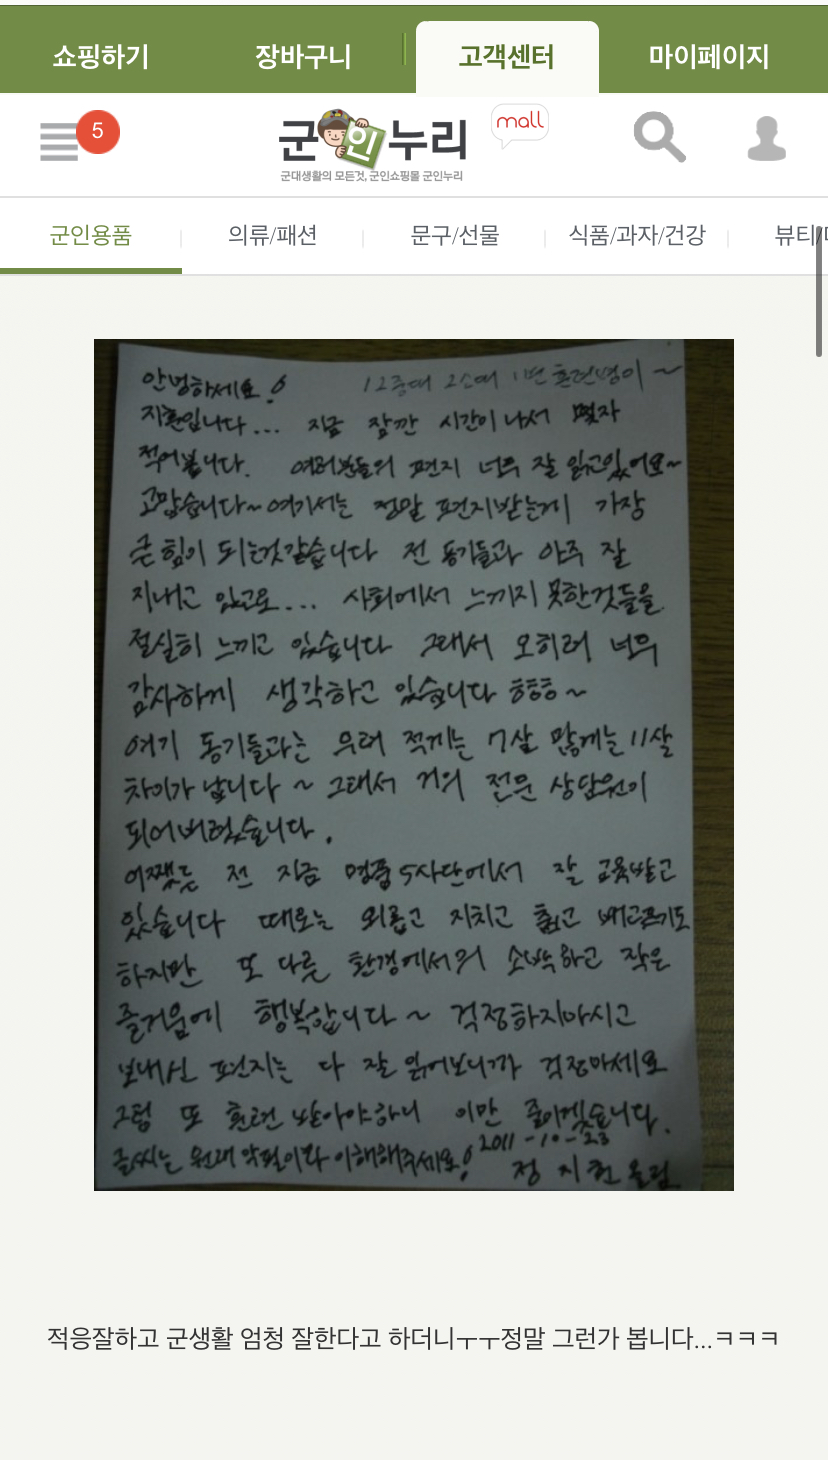 쇼핑하기 장바구니 고객센터 마이페이지
5
군인누리 mall
군대생활의 모든것, 군인쇼핑몰 군인누리
군인용품 의류/패션 문구/선물 식품/과자/건강 뷰티/
안녕하세요! 12중대 2소대 1번 훈련병이~
지훈입니다... 지금 잠깐 시간이 나서 몇자
적어봅니다. 여러분들의 편지 너무 잘 읽고있어요~
고맙습니다~여기서는 정말 편지받는게 가장
큰 힘이 되는것같습니다 전 동기들과 아주 잘
지내고 있고요... 사회에서 느끼지 못한것들을
절실히 느끼고 있습니다 그래서 오히려 너무
감사하게 생각하고 있습니다 ㅎㅎㅎ~
여기 동기들과는 무려 적게는 7살 많게는 11살
차이가 납니다 ~ 그래서 거의 전문 상담원이
되어버렸습니다.
어쨌든 전 지금 명품 5사단에서 잘 교육받고
있습니다 때로는 외롭고 지치고 춥고 배고프기도
하지만 또 다른 환경에서의 소박하고 작은
즐거움에 행복합니다~ 걱정하지마시고
보내신 편지는 다 잘 읽어보니까 걱정마세요
그럼 또 훈련 받아야하니 이만 줄이겠습니다.
글씨는 원래 악필이라 이해해주세요! 2011-10-23
정 지훈 올림
적응잘하고 군생활 엄청 잘한다고 하더니ㅜㅜ정말 그런가 봅니다...ㅋㅋㅋ